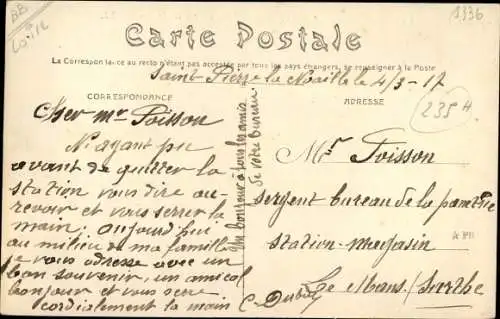 BB
Loire
1336
Carte Postale
La Correspondance au recto n'étant pas acceptée par tous les pays étrangers, se renseigner à la Poste
Saint-Pierre la Noaille le 4/3-17
CORRESPONDANCE
ADRESSE
235 H
Cher Mr Poisson
N'ayant pu
avant de quitter la
station vous dire au
revoir et vous serrer la
main; aujourd'hui
au milieu de ma famille
je vous adresse avec un
bon souvenir, un amical
bonjour et vous serre
cordialement la main
C. Dubois
un bonjour à tous les amis
de votre bureau
Mr Poisson
sergent bureau de la
station-magasin
Le Mans (Sarthe)